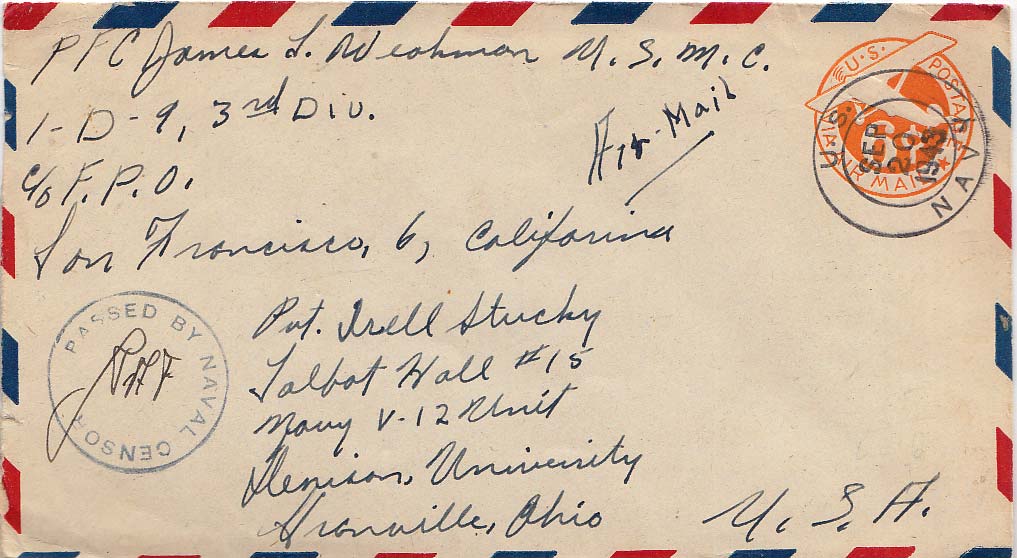 PFC James L. Weohman U. S. M. C.
1-D-9, 3rd Div.
c/o F. P. O.
San Francisco, 6, California
Air-Mail
U.S. POSTAGE
VIA AIR MAIL
U.S. NAVY
SEP
20
1943
PASSED BY NAVAL CENSOR
Pvt. Irell Stucky
Talbot Hall #15
Navy V-12 Unit
Denison, University
Granville, Ohio
U. S. A.